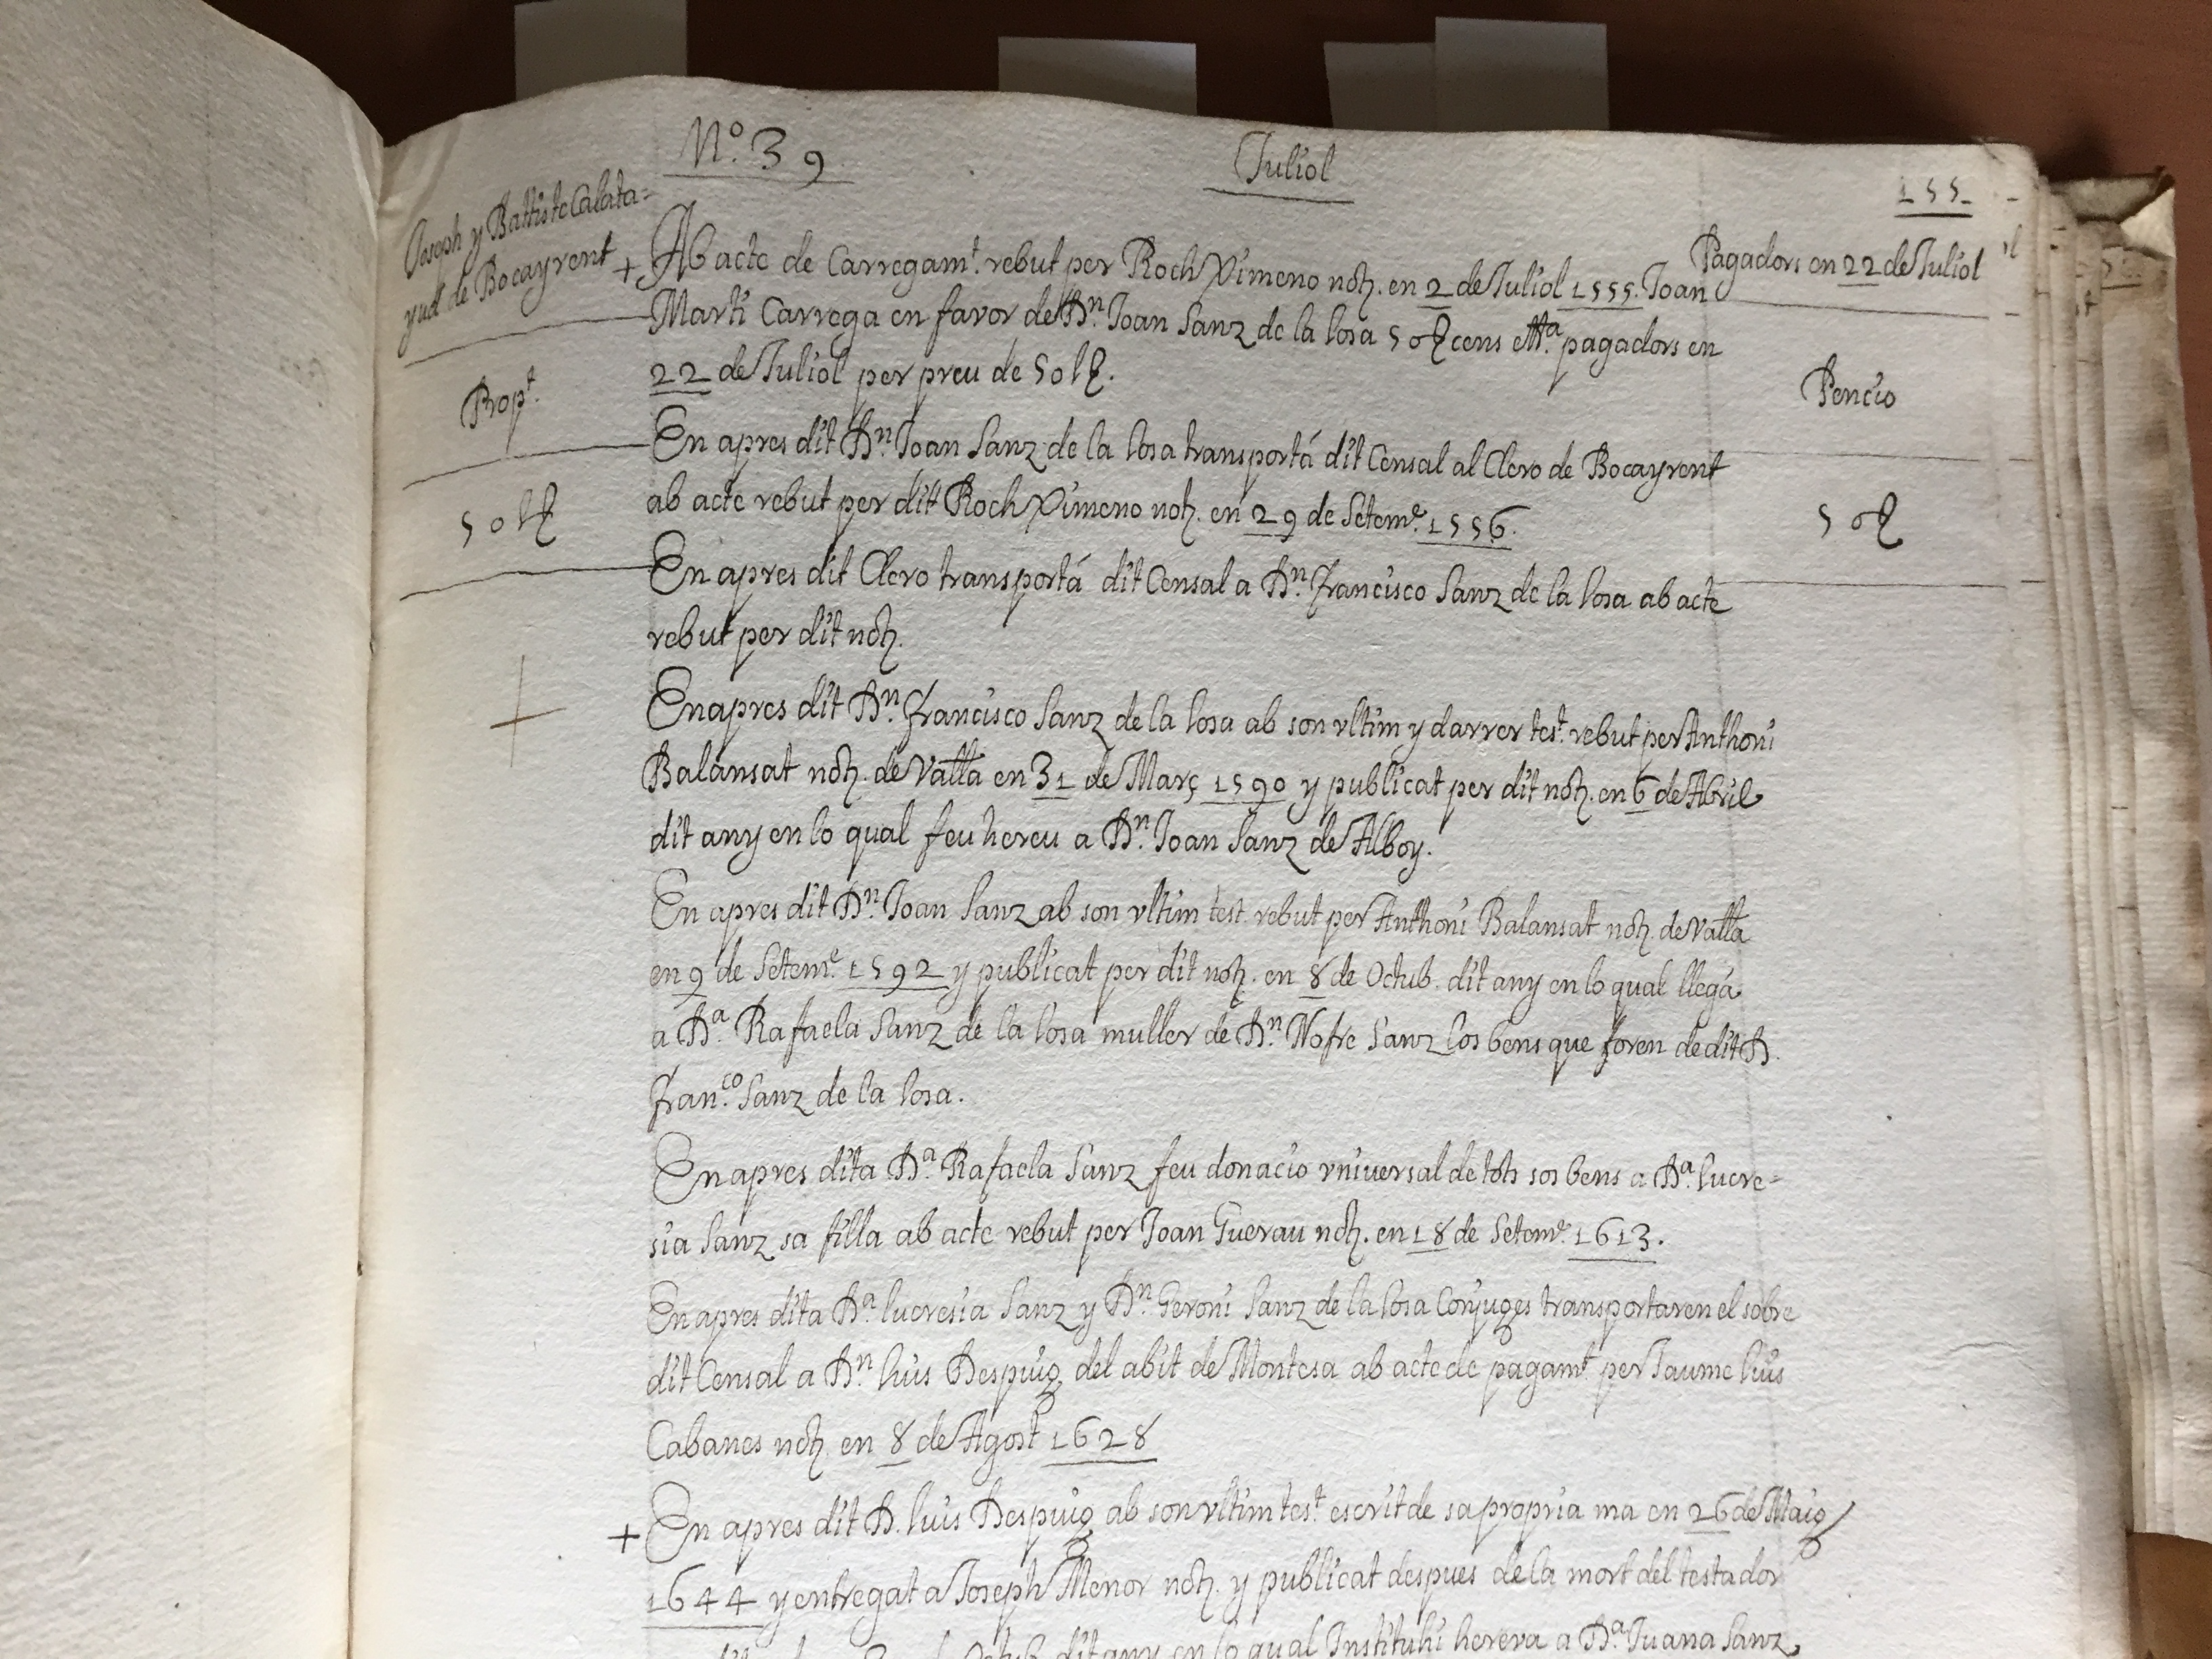 Nº. 39
Juliol
155
Joseph y Battiste Calata=
yud de Bocayrent
Pagadors en 22 de Juliol
+ Ab acte de Carregamt. rebut per Roch Ximeno noth. en 2 de Juliol 1555. Joan
Marti Carrega en favor de Dn. Joan Sanz de la losa 50 cens pagadors en
22 de Juliol per preu de 50
Propt.
Pencio
En apres dit Dn. Joan Sanz de la losa transportá dit Censal al Clero de Bocayrent
ab acte rebut per dit Roch Ximeno noth. en 29 de Setemre. 1556.
50
50
En apres dit Clero transportá dit Censal a Dn. Francisco Sanz de la losa ab acte
rebut per dit noth.
+
En apres dit Dn. Francisco Sanz de la losa ab son vltim y darrer test. rebut per Anthoni
Balansat noth. de Valla en 31 de Març 1590 y publicat per dit noth. en 6 de Abril
dit any en lo qual feu hereu a Dn. Joan Sanz de Alboy.
En apres dit Dn. Joan Sanz ab son vltim test. rebut per Anthoni Balansat noth. de Valla
en 9 de Setemre. 1592 y publicat per dit noth. en 8 de Octub. dit any en lo qual llegá
a Da. Rafaela Sanz de la losa muller de Dn. Nofre Sanz los bens que foren de dit D.
Franco. Sanz de la losa.
En apres dita Da. Rafaela Sanz feu donacio vniversal de tots sos bens a Da. lucre=
sia Sanz sa filla ab acte rebut per Joan Guerau noth. en 18 de Setemre. 1613.
En apres dita Da. lucresia Sanz y Dn. Geroni Sanz de la losa Conjuges transportaren el sobre
dit Censal a Dn. luis Despuig del abit de Montesa ab acte de pagamt. per Jaume luis
Cabanes noth. en 8 de Agost 1628
+ En apres dit D. luis Despuig ab son vltim test. escrit de sa propria ma en 26 de Maig
1644 y entregat a Joseph Menor noth. y publicat despues de la mort del testador
Octub. dit any en lo qual Instituhi hereva a Da. Juana Sanz